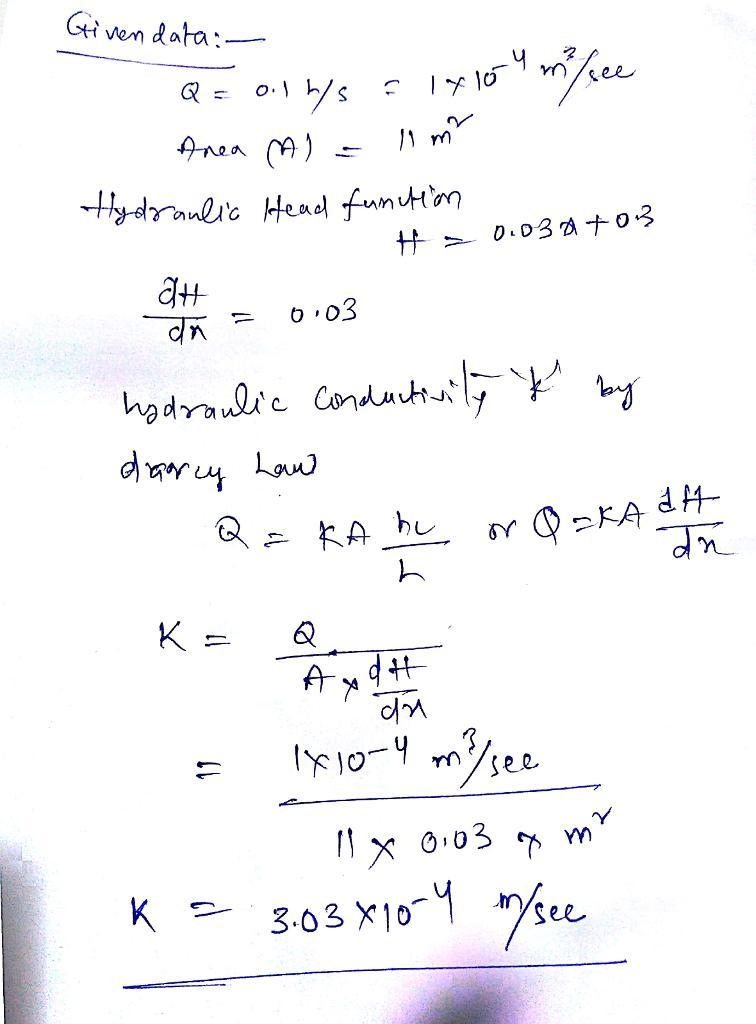 Given data:-
Q = 0.1 L/s = 1×10⁻⁴ m³/sec
Area (A) = 11 m²
Hydraulic Head function
H = 0.03x+0.3
dH/dx = 0.03
hydraulic conductivity 'K' by
darcy Law
Q = KA hL/L or Q = KA dH/dx
K = Q / (A × dH/dx)
= 1×10-4 m³/sec
11 × 0.03 × m²
K = 3.03 ×10-4 m/sec